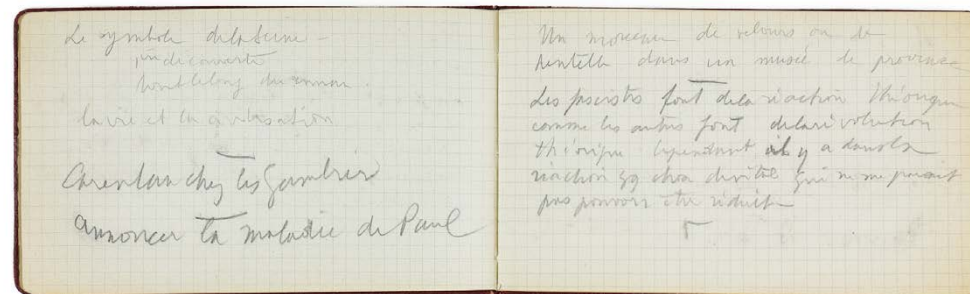 Le symbole de la Seine –
découverte
tout le long du
la vie et la civilisation
Carentan chez les Gambier
annoncer la maladie de Paul
Un morceau de velours ou de
dentelle dans un musée de province
Les fascistes font de la réaction théorique
comme les autres font de la révolution
théorique cependant il y a dans la
réaction qq chose de vital qui ne me parait
pas pouvoir être réduit –